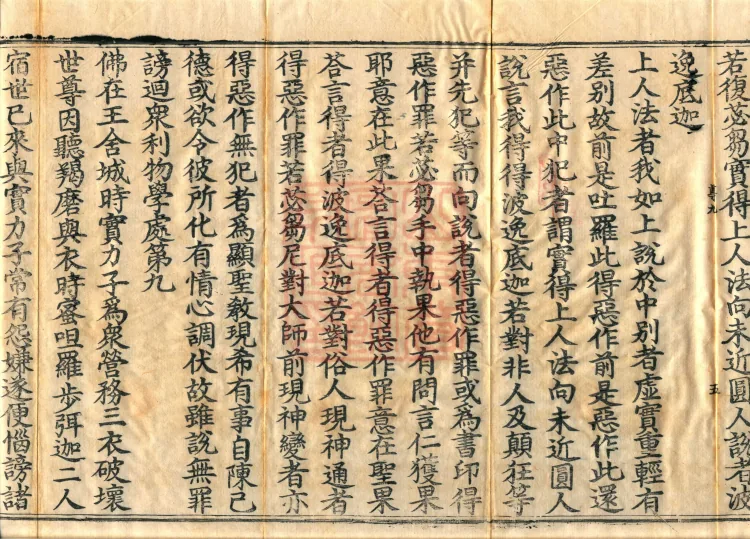 若復苾芻實得上人法向未近圓人說者波
逸底迦
上人法者我如上說於中別者虛實重輕有
差別故前是吐羅此得惡作前是惡作此還
惡作此中犯者謂實得上人法向未近圓人
說言我得得波逸底迦若對非人及顛狂等
并先犯等而向說者得惡作罪或為書印得
惡作罪若苾芻手中執果他有問言仁獲果
耶意在此果荅言得者得惡作罪意在聖果
荅言得者得波逸底迦若對俗人現神通者
得惡作罪若苾芻尼對大師前現神變者亦
得惡作無犯者為顯聖教現希有事自陳己
德或欲令彼所化有情心調伏故雖說無罪
謗迴衆利物學處第九
佛在王舍城時實力子為衆營務三衣破壞
世尊因聽羯磨與衣時蜜呾羅步弭迦二人
宿世已來與實力子常有怨嫌遂便惱謗諸